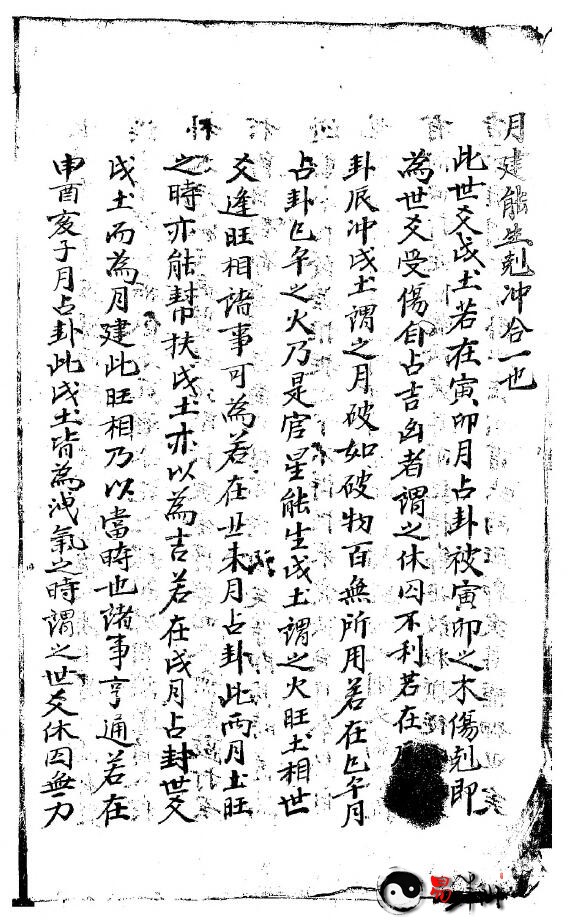 月建能生剋冲合一也
此世爻戌土若在寅卯月占卦被寅卯之木傷剋即
為世爻受傷自占吉凶者謂之休囚不利若在
卦辰冲戌土謂之月破如破物百無所用若在巳午月
占卦巳午之火乃是官星能生戌土謂之火旺土相世
爻逢旺相諸事可為若在丑未月占卦此兩月土旺
之時亦能幫扶戌土亦以為吉若在戌月占卦世爻
戌土而為月建此旺相乃以當時也諸事亨通若在
申酉亥子月占卦此戌土皆為洩氣之時謂之世爻休囚無力
易